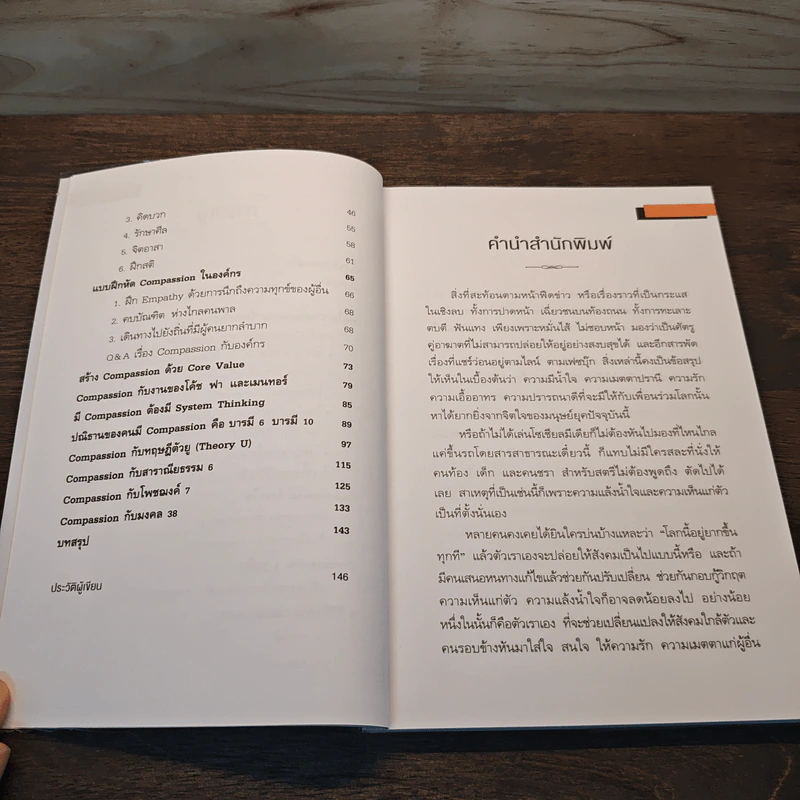 3. คิดบวก 46
4. รักษาศีล 55
5. จิตอาสา 58
6. ฝึกสติ 61
แบบฝึกหัด Compassion ในองค์กร 65
1. ฝึก Empathy ด้วยการนึกถึงความทุกข์ของผู้อื่น 66
2. คบบัณฑิต ห่างไกลคนพาล 68
3. เดินทางไปยังถิ่นที่มีผู้คนยากลำบาก 68
Q&A เรื่อง Compassion กับองค์กร 70
สร้าง Compassion ด้วย Core Value 73
Compassion กับงานของโค้ช ฟา และเมนทอร์ 79
มี Compassion ต้องมี System Thinking 85
ปณิธานของคนมี Compassion คือ บารมี 6 บารมี 10 89
Compassion กับทฤษฎีตัวยู (Theory U) 97
Compassion กับสาราณียธรรม 6 115
Compassion กับโพชฌงค์ 7 125
Compassion กับมงคล 38 133
บทสรุป 143
ประวัติผู้เขียน 146
คำนำสำนักพิมพ์
สิ่งที่สะท้อนตามหน้าฟีดข่าว หรือเรื่องราวที่เป็นกระแส
ในเชิงลบ ทั้งการปาดหน้า เฉี่ยวชนบนท้องถนน ทั้งการทะเลาะ
ตบตี ฟันแทง เพียงเพราะหมั่นไส้ ไม่ชอบหน้า มองว่าเป็นศัตรู
คู่อาฆาตที่ไม่สามารถปล่อยให้อยู่อย่างสงบสุขได้ และอีกสารพัด
เรื่องที่แชร์ว่อนอยู่ตามไลน์ ตามเฟซบุ๊ก สิ่งเหล่านี้คงเป็นข้อสรุป
ให้เห็นในเบื้องต้นว่า ความมีน้ำใจ ความเมตตาปรานี ความรัก
ความเอื้ออาทร ความปรารถนาดีที่จะมีให้กับเพื่อนร่วมโลกนั้น
หาได้ยากยิ่งจากจิตใจของมนุษย์ยุคปัจจุบันนี้
หรือถ้าไม่ได้เล่นโซเชียลมีเดียก็ไม่ต้องหันไปมองที่ไหนไกล
แค่ขึ้นรถโดยสารสาธารณะเดี๋ยวนี้ ก็แทบไม่มีใครสละที่นั่งให้
คนท้อง เด็ก และคนชรา สำหรับสตรีไม่ต้องพูดถึง ตัดไปได้
เลย สาเหตุที่เป็นเช่นนี้ก็เพราะความแล้งน้ำใจและความเห็นแก่ตัว
เป็นที่ตั้งนั่นเอง
หลายคนคงเคยได้ยินใครบ่นบ้างแหละว่า “โลกนี้อยู่ยากขึ้น
ทุกที” แล้วตัวเราเองจะปล่อยให้สังคมเป็นไปแบบนี้หรือ และถ้า
มีคนเสนอหนทางแก้ไขแล้วช่วยกันปรับเปลี่ยน ช่วยกันกอบกู้วิกฤต
ความเห็นแก่ตัว ความแล้งน้ำใจก็อาจลดน้อยลงไป อย่างน้อย
หนึ่งในนั้นก็คือตัวเราเอง ที่จะช่วยเปลี่ยนแปลงให้สังคมใกล้ตัวและ
คนรอบข้างหันมาใส่ใจ สนใจ ให้ความรัก ความเมตตาแก่ผู้อื่น